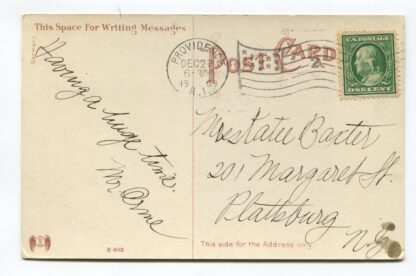 This Space For Writing Messages
POST CARD
Germany
PROVIDENCE
DEC 27
6 30 P
19
R.I.
2
U.S. POSTAGE
ONE CENT
Having a huge time.
Mr. Orme
Miss Katee Baxter
201 Margaret St.
Plattsburg
N.Y.
This side for the Address only.